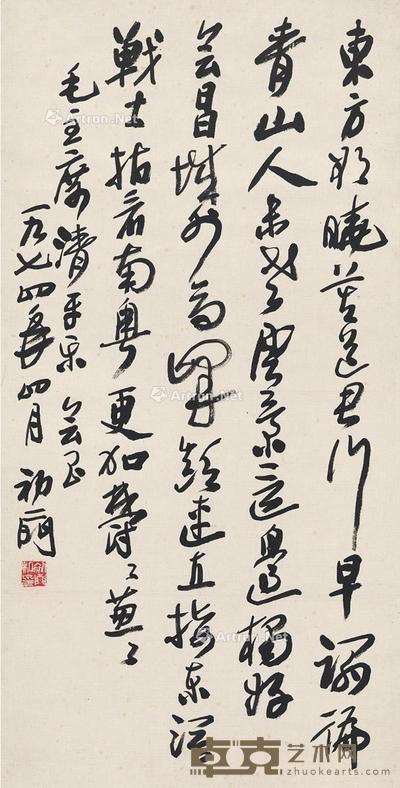 東方欲曉莫道君行早踏遍
青山人未老風景這邊獨好
会昌城外高峰顛連直接東溟
戰士指看南粤更加鬱々葱々
毛主席清平乐 会昌
一九七四年四月
Artron.Net
Artron.Net
Artron.Net
Artron.Net
Artron.Net
卓克艺术网
zhuokearts.com